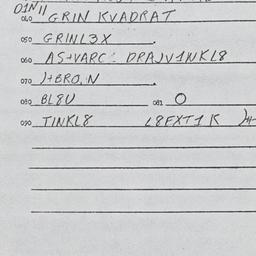 01N11
040 GRIN KVADRAT
050 GRINL3X
060 AS+VARC: DRAJV1NKL8
070 )+BRO,N
080 BL8U 081 O
090 TINKL8 L8FXT1K